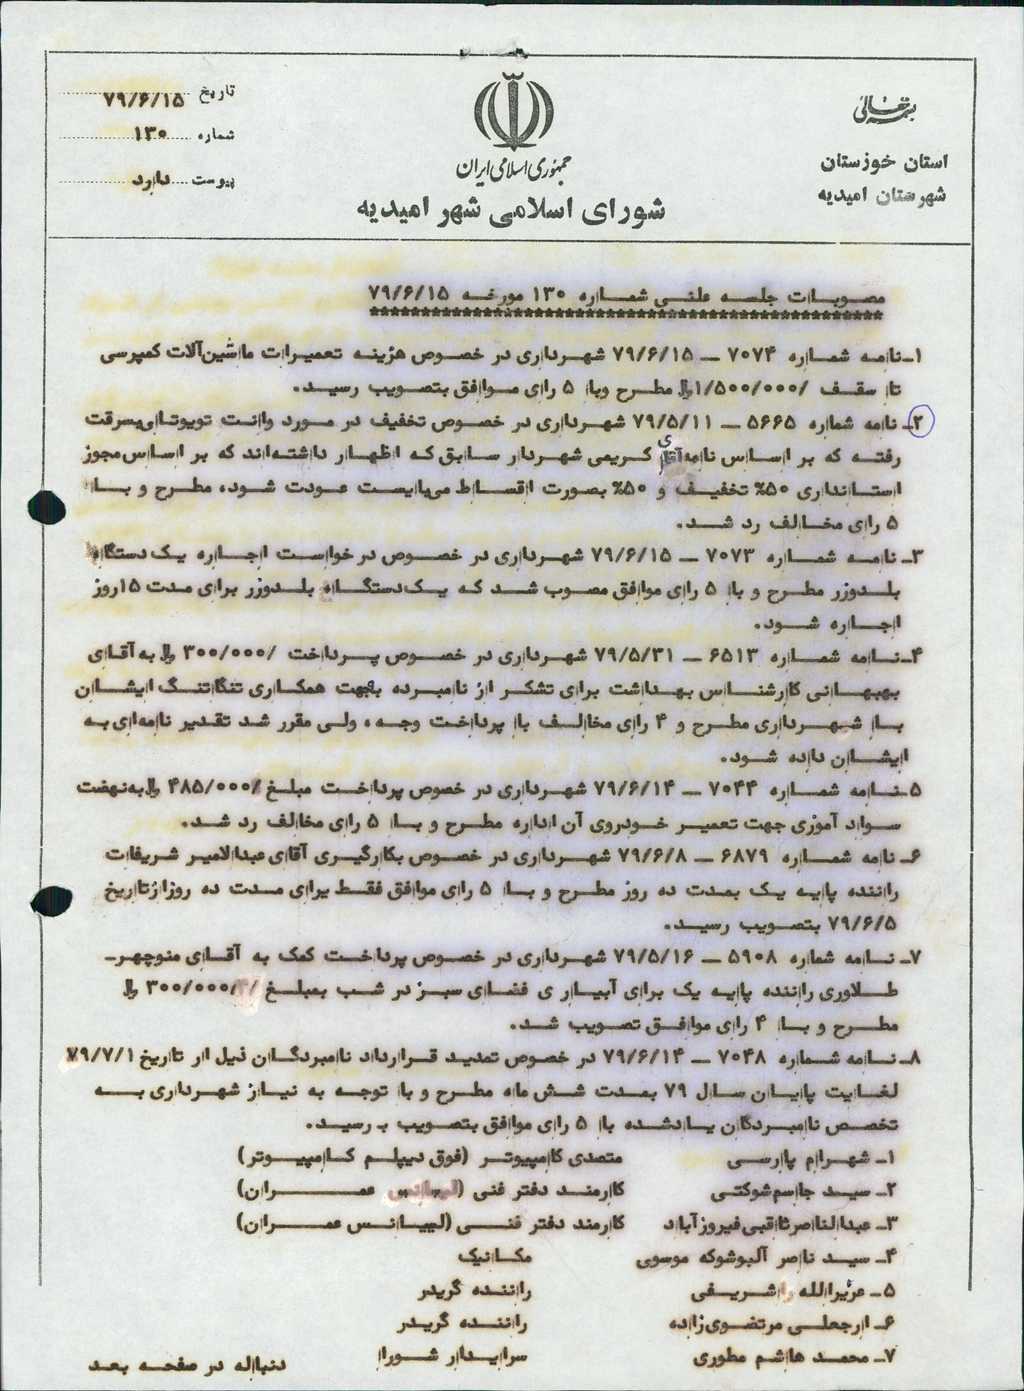 بسمه تعالی
استان خوزستان
شهرستان امیدیه
جمهوری اسلامی ایران
شورای اسلامی شهر امیدیه
تاریخ ۷۹/۶/۱۵
شماره ۱۳۰
پیوست دارد
مصوبات جلسه علنی شماره ۱۳۰ مورخه ۷۹/۶/۱۵
۱ـ نامه شماره ۷۰۷۴ ـ ۷۹/۶/۱۵ شهرداری در خصوص هزینه تعمیرات ماشین‌آلات کمپرسی
تا سقف /۱/۵۰۰/۰۰۰ریال مطرح وبا ۵ رای موافق بتصویب رسید.
۲ـ نامه شماره ۵۶۶۵ ـ ۷۹/۵/۱۱ شهرداری در خصوص تخفیف در مورد وانت تویوتای‌بسرقت
رفته که بر اساس نامه آقای کریمی شهردار سابق که اظهار داشته‌اند که بر اساس مجوز
استانداری ۵۰٪ تخفیف و ۵۰٪ بصورت اقساط می‌بایست عودت شود، مطرح و با
۵ رای مخالف رد شد.
۳ـ نامه شماره ۷۰۷۳ ـ ۷۹/۶/۱۵ شهرداری در خصوص درخواست اجاره یک دستگاه
بلدوزر مطرح و با ۵ رای موافق مصوب شد که یک دستگاه بلدوزر برای مدت ۱۵روز
اجاره شود.
۴ـ نامه شماره ۶۵۱۳ ـ ۷۹/۵/۳۱ شهرداری در خصوص پرداخت /۳۰۰/۰۰۰ ریال به آقای
بهبهانی کارشناس بهداشت برای تشکر از نامبرده بجهت همکاری تنگاتنگ ایشان
با شهرداری مطرح و ۴ رای مخالف با پرداخت وجه، ولی مقرر شد تقدیر نامه‌ای به
ایشان داده شود.
۵ـ نامه شماره ۷۰۴۴ ـ ۷۹/۶/۱۴ شهرداری در خصوص پرداخت مبلغ /۴۸۵/۰۰۰ ریال به نهضت
سواد آموزی جهت تعمیر خودروی آن اداره مطرح و با ۵ رای مخالف رد شد.
۶ـ نامه شماره ۶۸۷۹ ـ ۷۹/۶/۸ شهرداری در خصوص بکارگیری آقای عبدالامیر شریفات
راننده پایه یک بمدت ده روز مطرح و با ۵ رای موافق فقط برای مدت ده روزازتاریخ
۷۹/۶/۵ بتصویب رسید.
۷ـ نامه شماره ۵۹۰۸ ـ ۷۹/۵/۱۶ شهرداری در خصوص پرداخت کمک به آقای منوچهر ـ
طلاوری راننده پایه یک برای آبیاری فضای سبز در شب بمبلغ /۳۰۰/۰۰۰ ریال
مطرح و با ۴ رای موافق تصویب شد.
۸ـ نامه شماره ۷۰۴۸ ـ ۷۹/۶/۱۴ در خصوص تمدید قرارداد نامبردگان ذیل از تاریخ ۷۹/۷/۱
لغایت پایان سال ۷۹ بمدت شش ماه مطرح و با توجه به نیاز شهرداری به
تخصص نامبردگان یادشده با ۵ رای موافق بتصویب رسید.
۱ـ شهرام پارسی متصدی کامپیوتر (فوق دیپلم کامپیوتر)
۲ـ سید جاسم شوکتی کارمند دفتر فنی (لیسانس عمران)
۳ـ عبدالناصرثاقبی فیروزآباد کارمند دفتر فنی (لیسانس عمران)
۴ـ سید ناصر آلبوشوکه موسوی مکانیک
۵ـ عزیرالله شریفی راننده گریدر
۶ـ ارجعلی مرتضوی‌زاده راننده گریدر
۷ـ محمد هاشم مطوری سرایدار شورا
دنباله در صفحه بعد